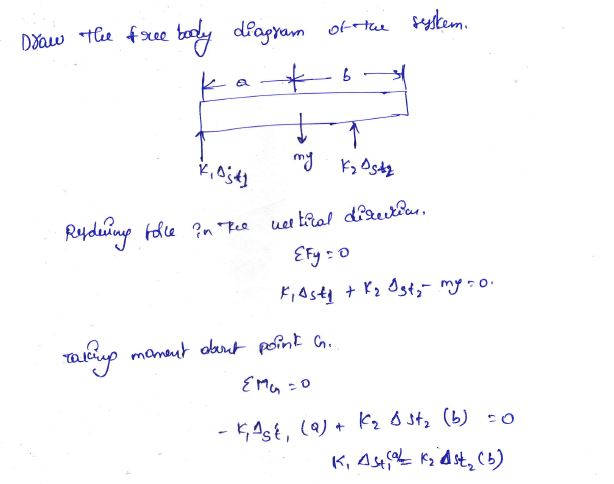 Draw the free body diagram of the system.
a b
K₁Δst1 mg K₂Δst2
Resolving force in the vertical direction.
ΣFy = 0
K₁Δst1 + K₂Δst₂ - mg = 0.
Taking moment about point G.
ΣMG = 0
- K₁Δst₁ (a) + K₂Δst₂ (b) = 0
K₁Δst₁(a) = K₂Δst₂(b)